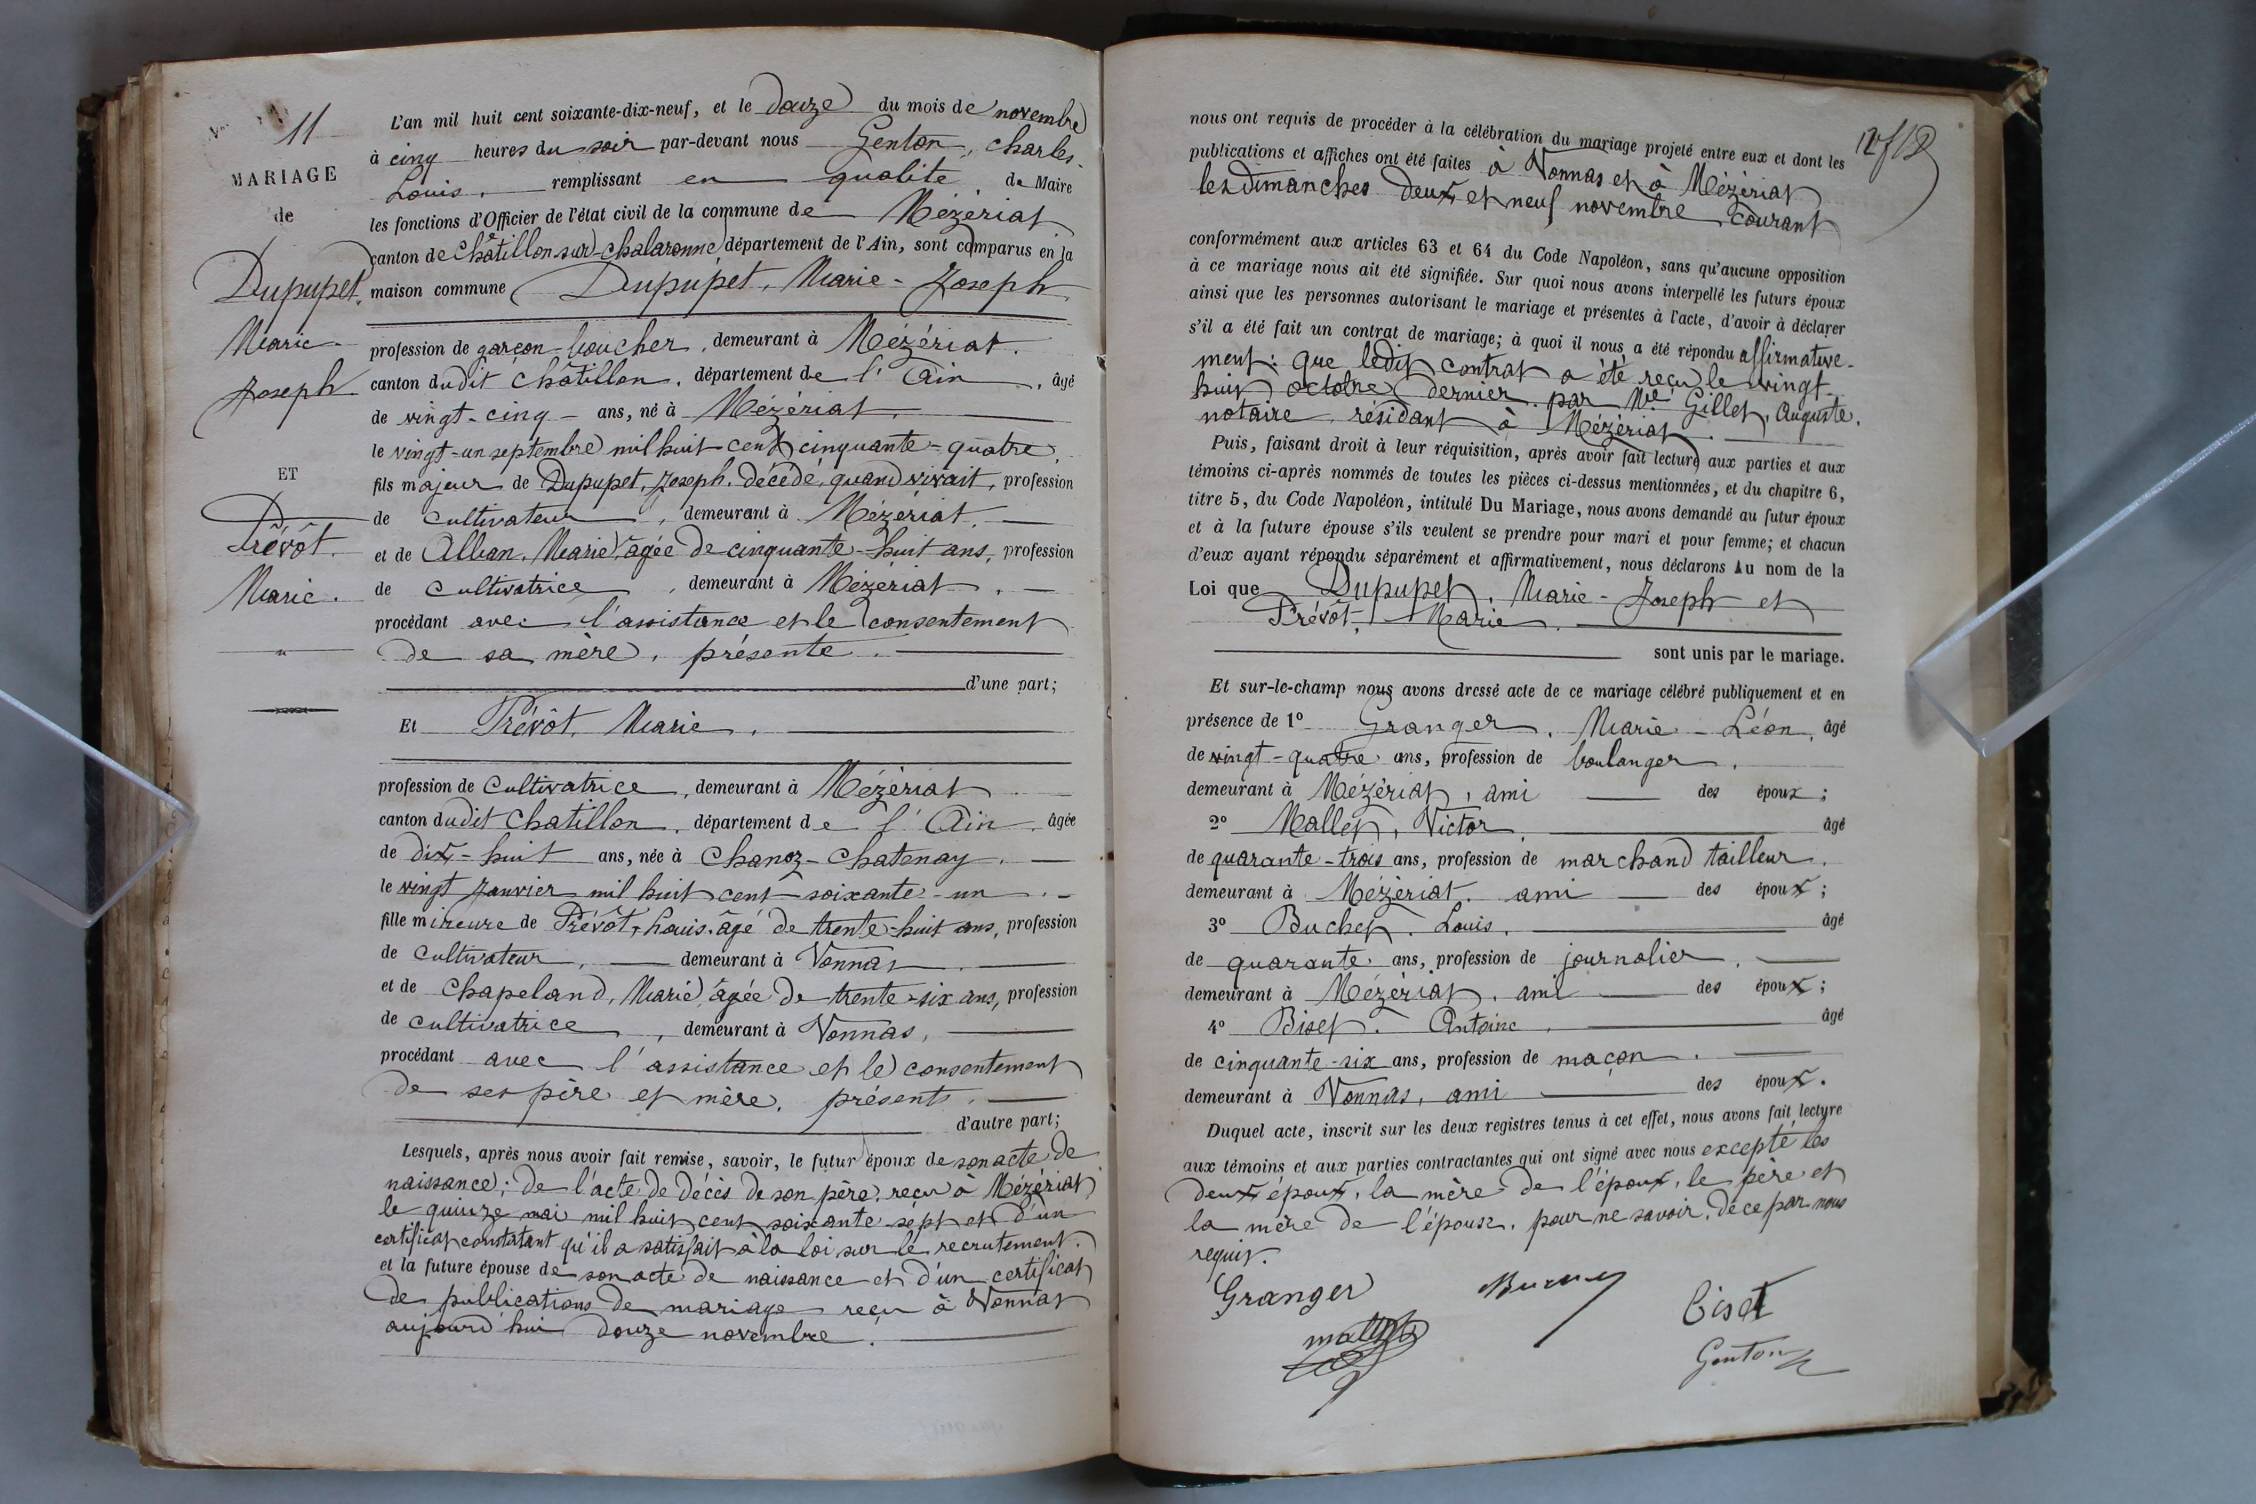 11
MARIAGE
de
Dupupet
Marie-
Joseph
ET
Prévôt
Marie.
L'an mil huit cent soixante-dix-neuf, et le douze du mois de novembre
à cinq heures du soir par-devant nous Genton, Charles-
Louis, remplissant en qualité de Maire
les fonctions d'Officier de l'état civil de la commune de Mézériat
canton de Châtillon-sur-Chalaronne, département de l'Ain, sont comparus en la
maison commune Dupupet, Marie-Joseph
profession de garçon-boucher, demeurant à Mézériat.
canton dudit Châtillon, département de l'Ain, âgé
de vingt-cinq ans, né à Mézériat,
le vingt-un septembre mil huit cent cinquante-quatre,
fils majeur de Dupupet, Joseph, décédé, quand vivait, profession
de cultivateur, demeurant à Mézériat,
et de Alban, Marie, âgée de cinquante-huit ans, profession
de cultivatrice, demeurant à Mézériat,
procédant avec l'assistance et le consentement
de sa mère, présente.
d'une part;
Et Prévôt, Marie,
profession de cultivatrice, demeurant à Mézériat
canton dudit Chatillon, département de l'Ain, âgée
de dix-huit ans, née à Chanoz-Chatenay,
le vingt Janvier mil huit cent soixante-un
fille mineure de Prévôt, Louis, âgé de trente-huit ans, profession
de cultivateur, demeurant à Vonnas,
et de Chapeland, Marie, âgée de trente-six ans, profession
de cultivatrice, demeurant à Vonnas,
procédant avec l'assistance et le consentement
de ses père et mère, présents,
d'autre part;
Lesquels, après nous avoir fait remise, savoir, le futur époux de son acte de
naissance; de l'acte de décès de son père, reçu à Mézériat
le quinze mai mil huit cent soixante sept et d'un
certificat constatant qu'il a satisfait à la loi sur le recrutement.
et la future épouse de son acte de naissance et d'un certificat
de publications de mariage reçu à Vonnas
aujourd'hui douze novembre.
nous ont requis de procéder à la célébration du mariage projeté entre eux et dont les
publications et affiches ont été faites à Vonnas et à Mézériat
les dimanches deux et neuf novembre courant
conformément aux articles 63 et 64 du Code Napoléon, sans qu'aucune opposition
à ce mariage nous ait été signifiée. Sur quoi nous avons interpellé les futurs époux
ainsi que les personnes autorisant le mariage et présentes à l'acte, d'avoir à déclarer
s'il a été fait un contrat de mariage; à quoi il nous a été répondu affirmative-
ment: que ledit contrat a été reçu le vingt-
huit octobre dernier par Me Gillet, Auguste,
notaire résidant à Mézériat.
Puis, faisant droit à leur réquisition, après avoir fait lecture aux parties et aux
témoins ci-après nommés de toutes les pièces ci-dessus mentionnées, et du chapitre 6,
titre 5, du Code Napoléon, intitulé Du Mariage, nous avons demandé au futur époux
et à la future épouse s'ils veulent se prendre pour mari et pour femme; et chacun
d'eux ayant répondu séparément et affirmativement, nous déclarons Au nom de la
Loi que Dupupet, Marie-Joseph et
Prévôt, Marie,
sont unis par le mariage.
Et sur-le-champ nous avons dressé acte de ce mariage célébré publiquement et en
présence de 1º Granger, Marie-Léon, âgé
de vingt-quatre ans, profession de boulanger,
demeurant à Mézériat, ami des époux;
2º Mallet, Victor, âgé
de quarante-trois ans, profession de marchand tailleur,
demeurant à Mézériat, ami des époux;
3º Buchet, Louis, âgé
de quarante ans, profession de journalier,
demeurant à Mézériat, ami des époux;
4º Biset, Antoine, âgé
de cinquante-six ans, profession de maçon,
demeurant à Vonnas, ami des époux.
Duquel acte, inscrit sur les deux registres tenus à cet effet, nous avons fait lecture
aux témoins et aux parties contractantes qui ont signé avec nous excepté les
deux époux, la mère de l'époux, le père et
la mère de l'épouse, pour ne savoir, de ce par nous
requis.
Granger
Biset
Genton